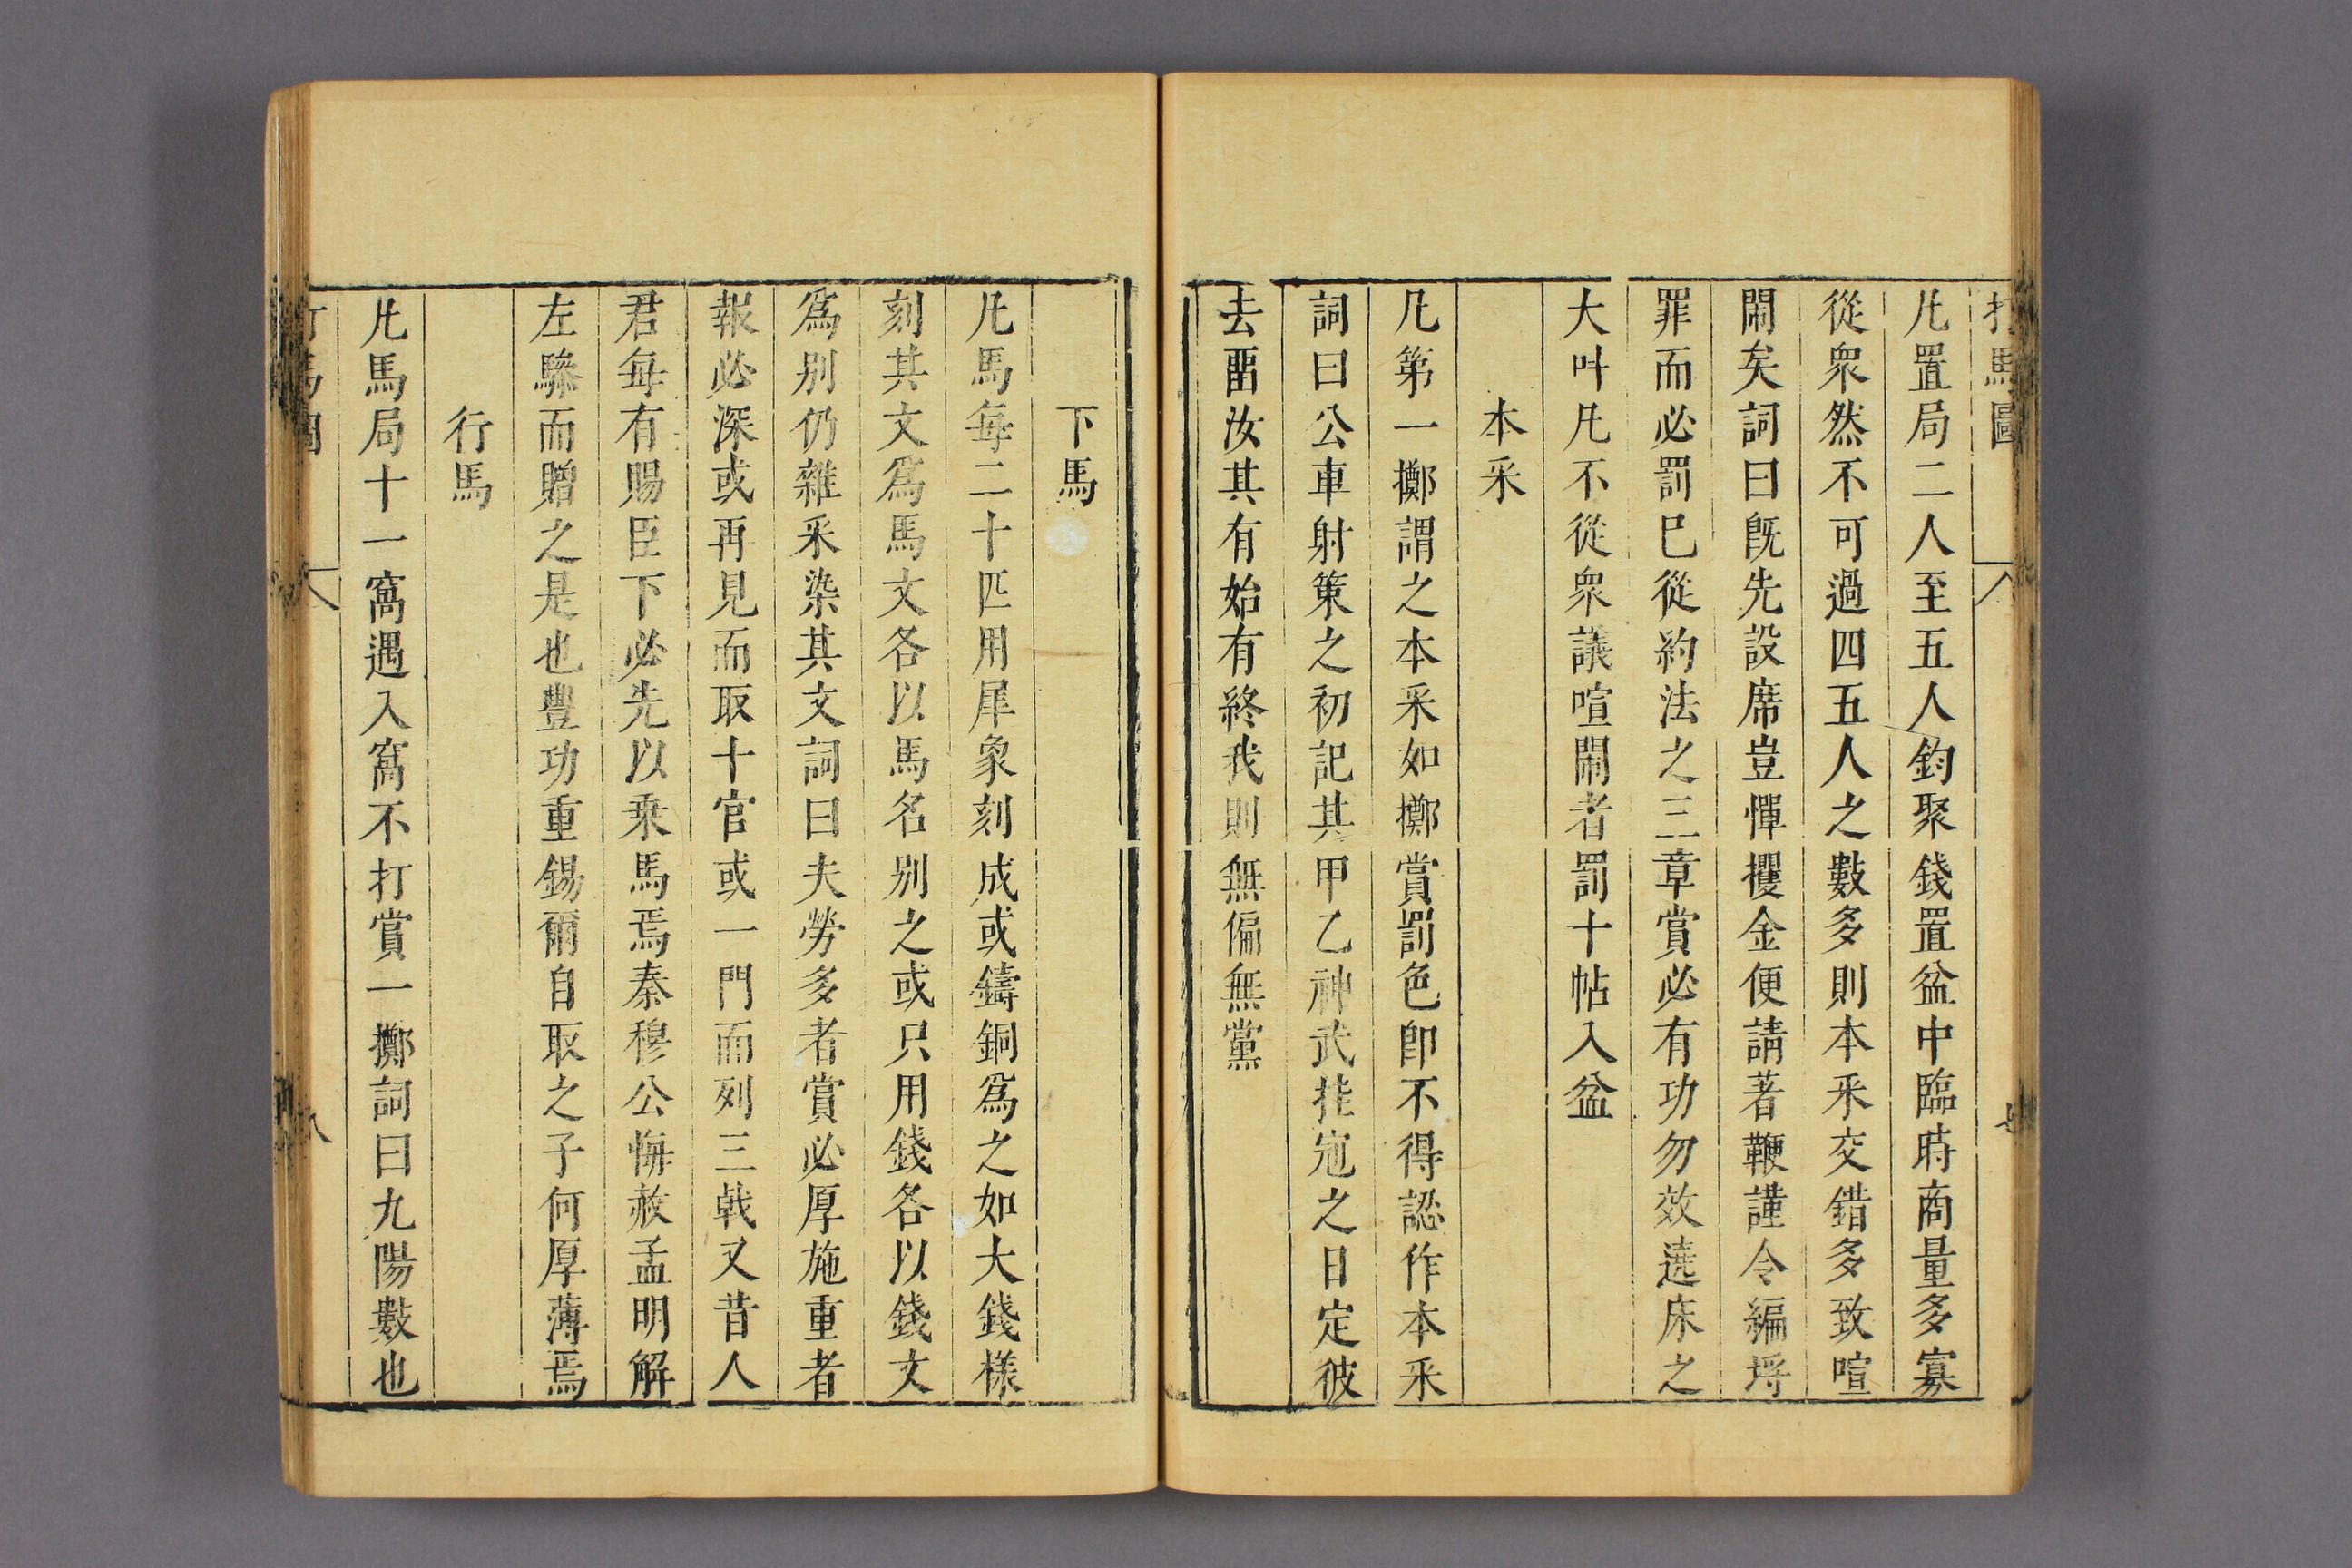 打馬圖
七
凡置局二人至五人鈞聚錢置盆中臨時商量多寡
從衆然不可過四五人之數多則本采交錯多致喧
閙矣詞曰旣先設席豈憚攫金便請著鞭謹令編埒
罪而必罰巳從約法之三章賞必有功勿效遶床之
大叫凡不從衆議喧閙者罰十帖入盆
本采
凡第一擲謂之本采如擲賞罰色卽不得認作本采
詞曰公車射策之初記其甲乙神武挂冠之日定彼
去畱汝其有始有終我則無偏無黨
下馬
凡馬每二十匹用犀象刻成或鑄銅爲之如大錢樣
刻其文爲馬文各以馬名别之或只用錢各以錢文
爲别仍雜采染其文詞曰夫勞多者賞必厚施重者
報必深或再見而取十官或一門而列三戟又昔人
君每有賜臣下必先以乗馬焉秦穆公悔赦孟明解
左驂而贈之是也豐功重錫爾自取之子何厚薄焉
行馬
凡馬局十一窩遇入窩不打賞一擲詞曰九陽數也
打馬圖
八